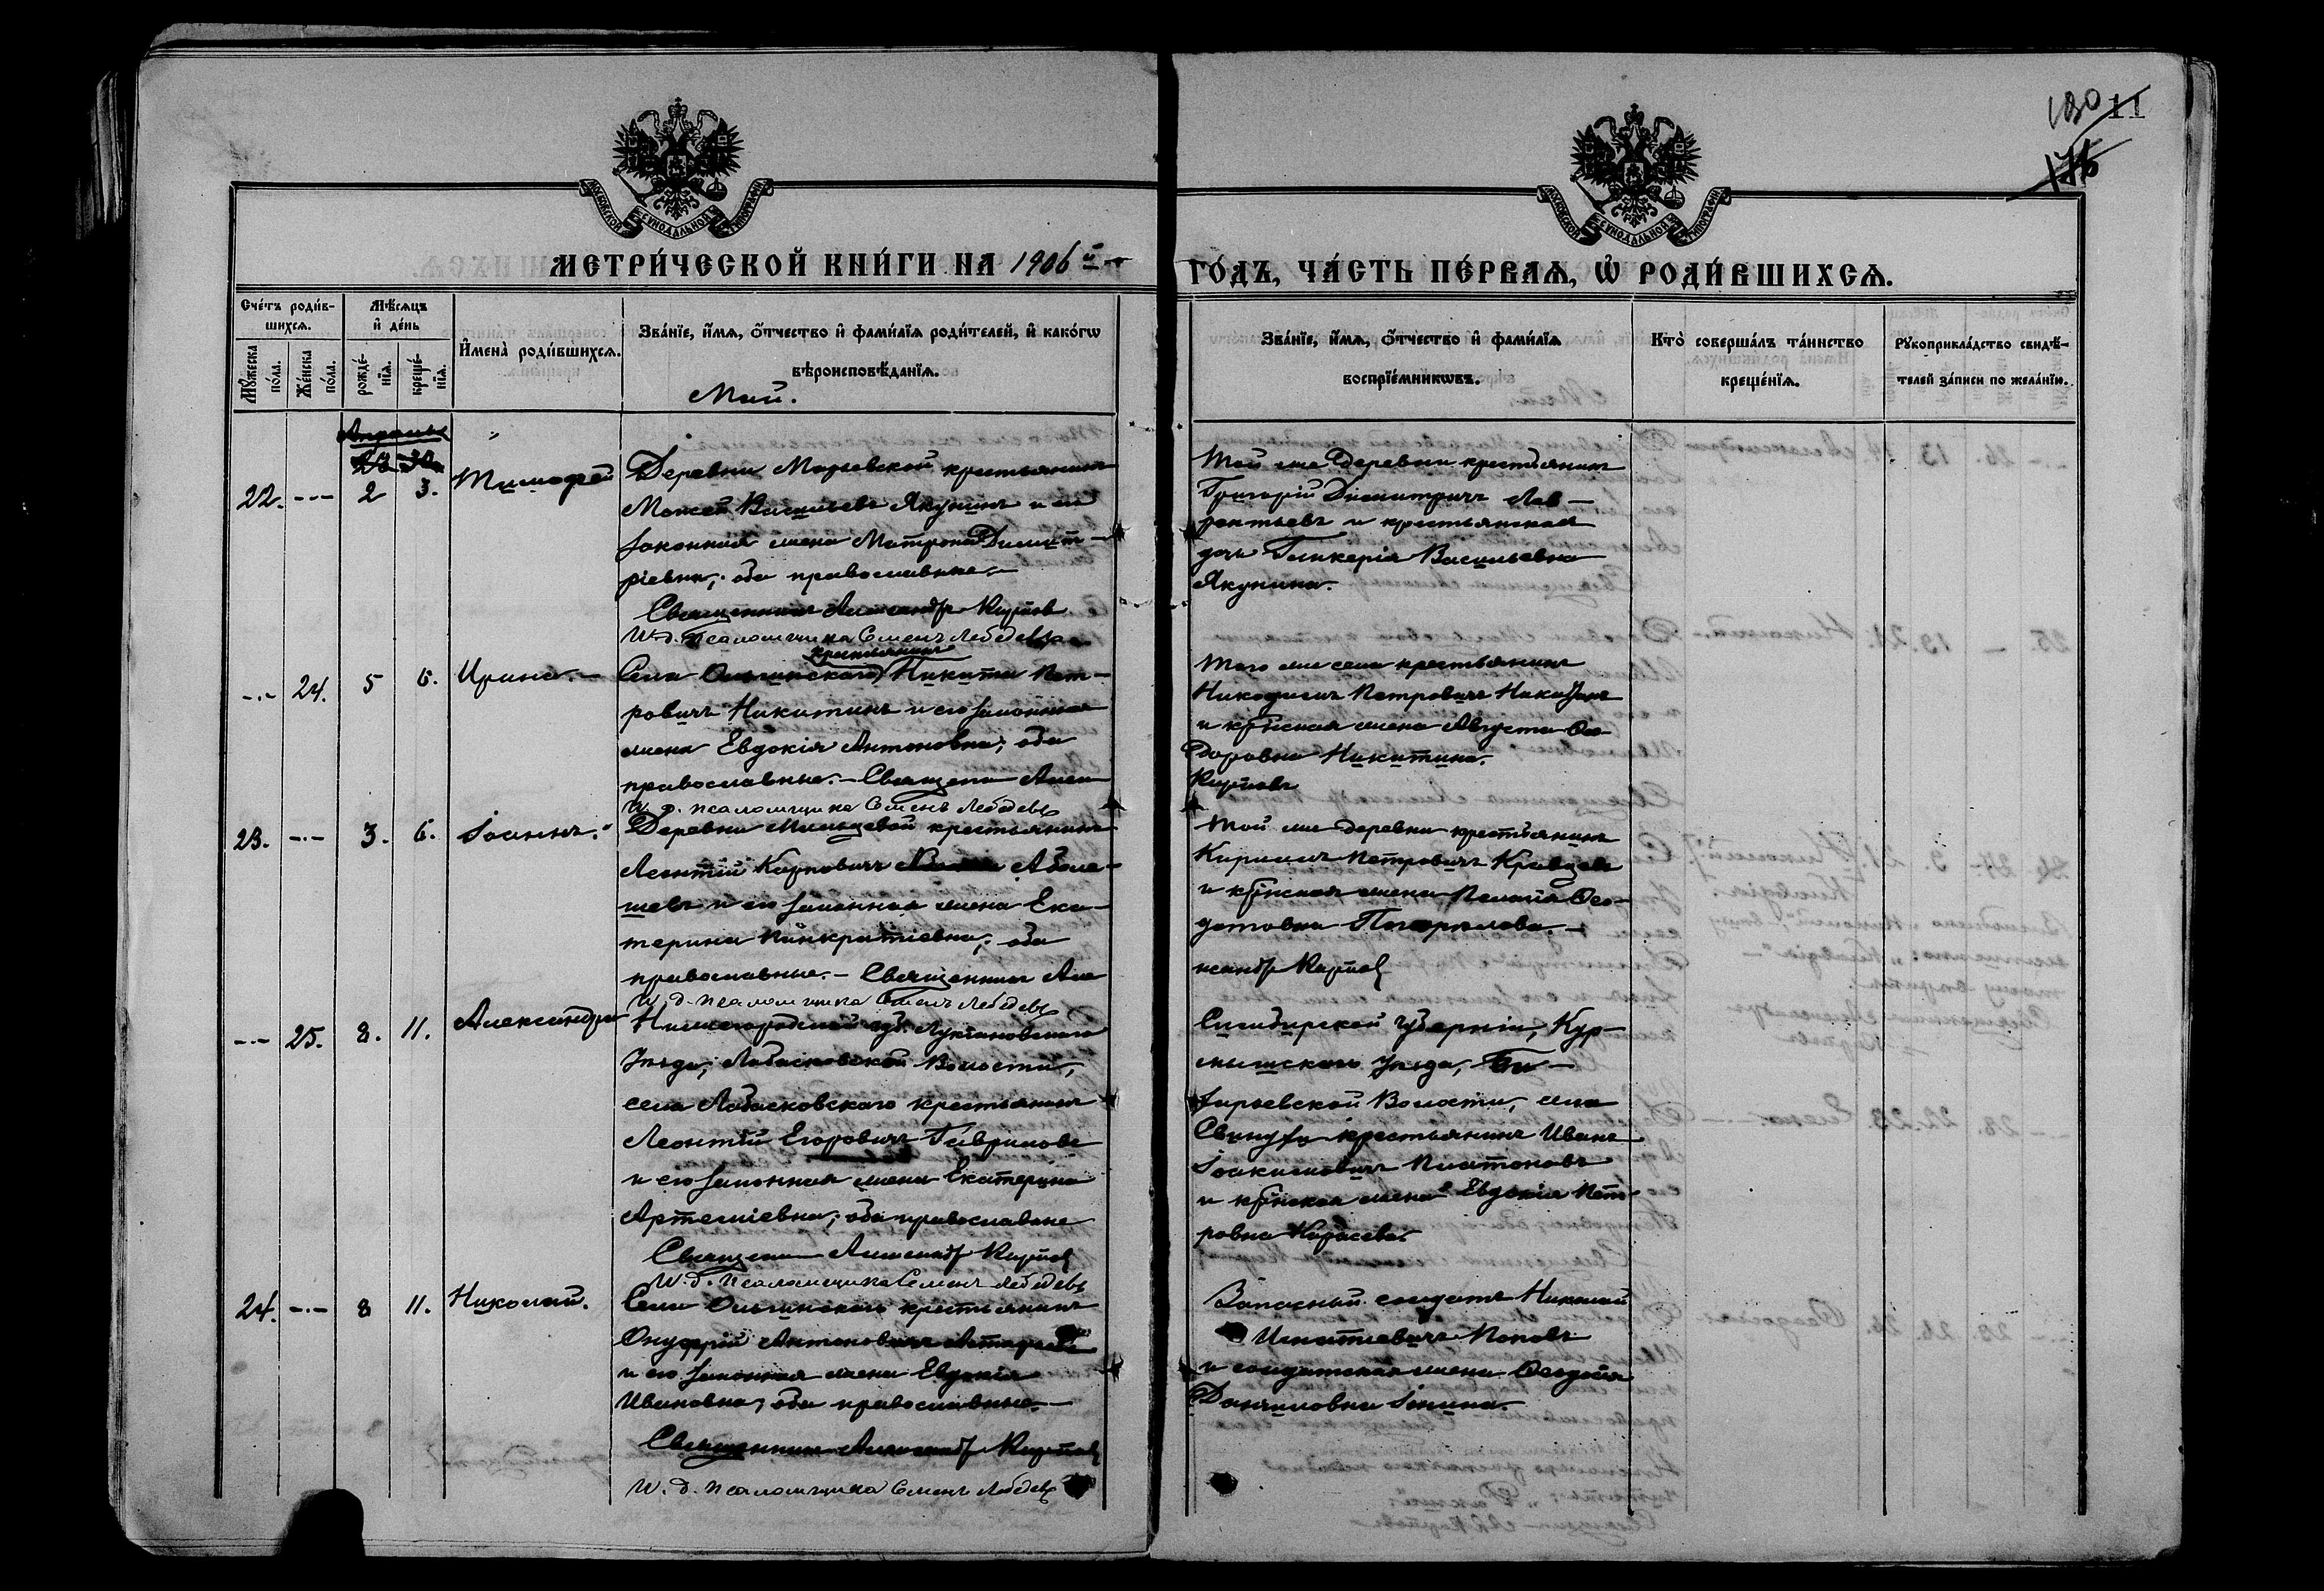 130 11
175
МОСКОВСКОЙ СѴНОДАЛЬНОЙ ТИПОГРАФІИ
МОСКОВСКОЙ СѴНОДАЛЬНОЙ ТИПОГРАФІИ
МЕТРИ́ЧЕСКОЙ КНИ́ГИ НА 1906 й
ГО́ДЪ, ЧА́СТЬ ПЕ́РВАѦ, Ѡ РОДИ́ВШИХСѦ.
Сче́тъ роди́в-
шихсѧ.
Мꙋ́жеска по́ла.
Же́нска по́ла.
Мѣ́сѧцъ
и҆ де́нь
рожде́-
нїѧ.
креще́-
нїѧ.
И҆мена̀ роди́вшихсѧ.
Зва́нїе, и҆́мѧ, ѻ҆́тчество и҆ фами́лїѧ роди́телей, и҆ како́гѡ
вѣроисповѣ́данїѧ.
Зва́нїе, и҆́мѧ, ѻ҆́тчество и҆ фами́лїѧ
воспрїе́мникѡвъ.
Кто̀ соверша́лъ та́инство
креще́нїѧ.
Рꙋкоприкла́дство свидѣ́-
телей за́писи по жела́нїю.
Май.
22. --- 2 3. Тимофей
Деревни Марьевской крестьянинъ
Моисей Васильевъ Якунинъ и его
законная жена Матрона Димит-
ріевна; оба православные.
Священникъ Александръ Карпов
И. д. псаломщика Семенъ Лебедевъ
Той же деревни крестьянинъ
Григорій Димитричъ Лав-
рентьевъ и крестьянская
дочь Гликерія Васильевна
Якунина.
-.- 24. 5 6. Ирина.
крестьянинъ
Села Ольгинскаго Никита Пет-
ровичъ Никитинъ и его законная
жена Евдокія Антоновна; оба
православные. - Священн Алек
И. д. псаломщика Семенъ Лебедевъ
Того же села крестьянинъ
Никодимъ Петровичъ Никитинъ
и кр̃нская жена Августа Ѳео-
доровна Никитина.
Карповъ
23. -.- 3. 6. Іоаннъ.
Деревни крестьянинъ
Леонтій Карповичъ
и его законная жена Ека-
терина Панкратіевна; оба
православные. - Священникъ Але
И. д. псаломщика Семенъ Лебедевъ
Той же деревни крестьянинъ
Кириллъ Петровичъ Кравцевъ
и кр̃нская жена Пелагія Ѳео-
дотовна Погорелова.
ксандръ Карпов
-.- 25. 8. 11. Александра
Нижегородской губ. Лукіановскаго
Уѣзда, Лобасковской Волости,
села Лобасковскаго крестьянинъ
Леонтій Егоровичъ Гавриловъ
и его законная жена Екатерина
Артеміевна; оба православные
Священн Александръ Карпов
И. д. псаломщика Семенъ Лебедевъ
Симбирской губерніи, Кур-
мышскаго Уѣзда,
Волости, села
крестьянинъ Иванъ
Іоакимовичъ Платоновъ
и кр̃нская жена Евдокія Пет-
ровна Карасева.
24. -.- 8 11. Николай.
Села Ольгинскаго крестьянинъ
Онуфрій Антоновичъ
и его законная жена Евдокія
Ивановна; оба православные.
Священникъ Александръ Карпов
И. д. псаломщика Семенъ Лебедевъ
Запасный солдатъ Николай
Игнатіевичъ Поповъ
и солдатская жена
Данииловна